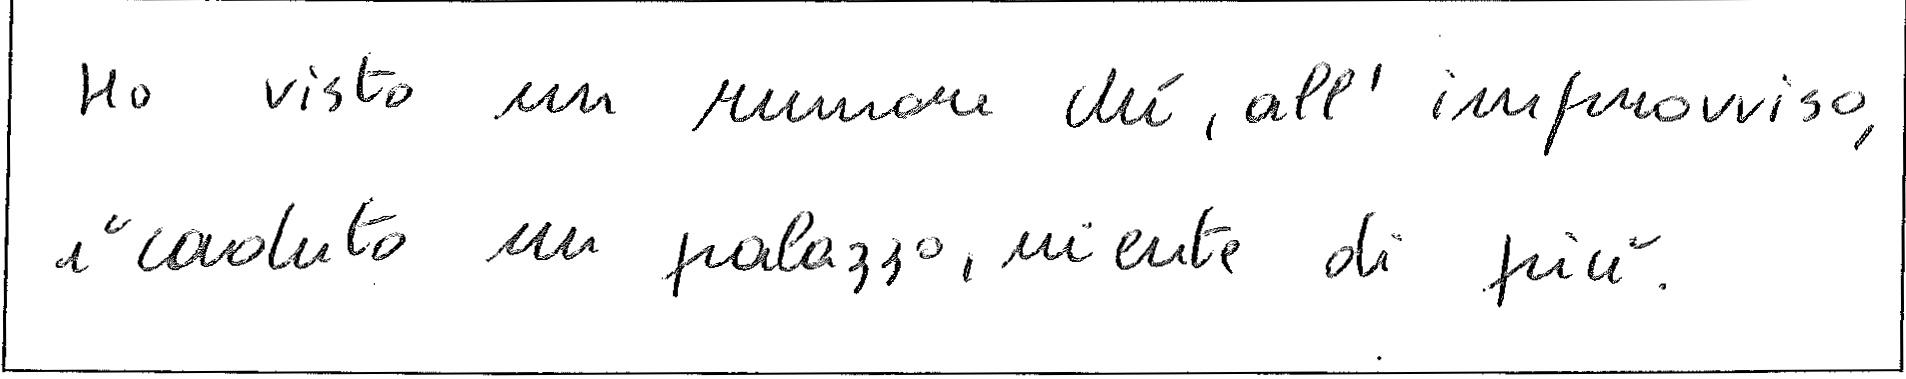 Ho visto un rumore chi, all' improvviso,
è caduto un palazzo, niente di più.